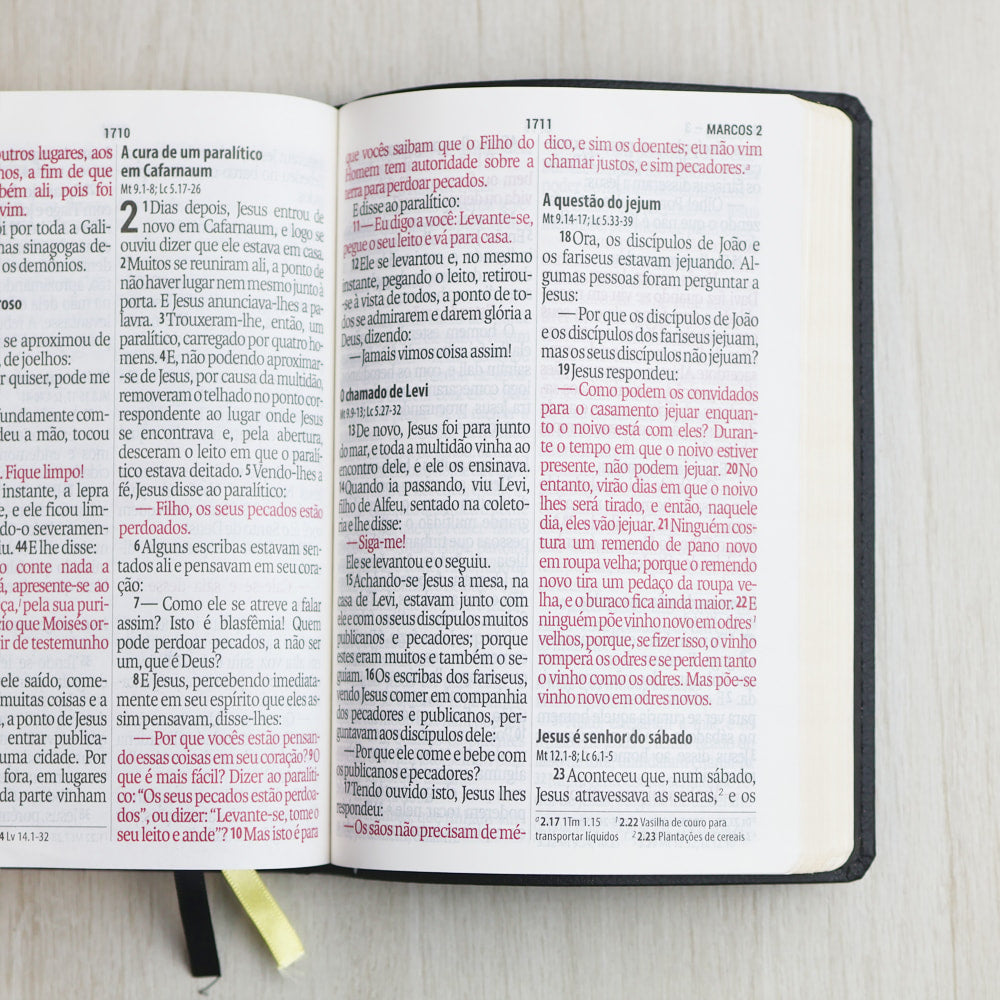 1710
outros lugares, aos
a fim de que
ali, pois foi
vim.
por toda a Gali-
nas sinagogas de-
os demônios.
se aproximou de
de joelhos:
quiser, pode me
deu a mão, tocou
Fique limpo!
instante, a lepra
e ele ficou lim-
severamen-
44 E lhe disse:
conte nada a
apresente-se ao
pela sua puri-
que Moisés or-
de testemunho
ele saído, come-
muitas coisas e a
a ponto de Jesus
entrar publica-
uma cidade. Por
fora, em lugares
da parte vinham
Lv 14.1-32
A cura de um paralítico
em Cafarnaum
Mt 9.1-8; Lc 5.17-26
2 1Dias depois, Jesus entrou de
novo em Cafarnaum, e logo se
ouviu dizer que ele estava em casa.
2Muitos se reuniram ali, a ponto de
não haver lugar nem mesmo junto à
porta. E Jesus anunciava-lhes a pa-
lavra. 3Trouxeram-lhe, então, um
paralítico, carregado por quatro ho-
mens. 4E, não podendo aproximar-
-se de Jesus, por causa da multidão,
removeram o telhado no ponto cor-
respondente ao lugar onde Jesus
se encontrava e, pela abertura,
desceram o leito em que o paralí-
tico estava deitado. 5Vendo-lhes a
fé, Jesus disse ao paralítico:
— Filho, os seus pecados estão
perdoados.
6Alguns escribas estavam sen-
tados ali e pensavam em seu cora-
ção:
7— Como ele se atreve a falar
assim? Isto é blasfêmia! Quem
pode perdoar pecados, a não ser
um, que é Deus?
8E Jesus, percebendo imediata-
mente em seu espírito que eles as-
sim pensavam, disse-lhes:
— Por que vocês estão pensan-
do essas coisas em seu coração? 9O
que é mais fácil? Dizer ao paralíti-
co: “Os seus pecados estão perdoa-
dos”, ou dizer: “Levante-se, tome o
seu leito e ande”? 10Mas isto é para
1711
MARCOS 2
que vocês saibam que o Filho do
Homem tem autoridade sobre a
terra para perdoar pecados.
E disse ao paralítico:
11— Eu digo a você: Levante-se,
pegue o seu leito e vá para casa.
12Ele se levantou e, no mesmo
instante, pegando o leito, retirou-
-se à vista de todos, a ponto de to-
dos se admirarem e darem glória a
Deus, dizendo:
— Jamais vimos coisa assim!
O chamado de Levi
Mt 9.9-13; Lc 5.27-32
13De novo, Jesus foi para junto
do mar, e toda a multidão vinha ao
encontro dele, e ele os ensinava.
14Quando ia passando, viu Levi,
filho de Alfeu, sentado na coleto-
ria e lhe disse:
— Siga-me!
Ele se levantou e o seguiu.
15Achando-se Jesus à mesa, na
casa de Levi, estavam junto com
ele e com os seus discípulos muitos
publicanos e pecadores; porque
estes eram muitos e também o se-
guiam. 16Os escribas dos fariseus,
vendo Jesus comer em companhia
dos pecadores e publicanos, per-
guntavam aos discípulos dele:
— Por que ele come e bebe com
os publicanos e pecadores?
17Tendo ouvido isto, Jesus lhes
respondeu:
— Os sãos não precisam de mé-
dico, e sim os doentes; eu não vim
chamar justos, e sim pecadores.a
A questão do jejum
Mt 9.14-17; Lc 5.33-39
18Ora, os discípulos de João e
os fariseus estavam jejuando. Al-
gumas pessoas foram perguntar a
Jesus:
— Por que os discípulos de João
e os discípulos dos fariseus jejuam,
mas os seus discípulos não jejuam?
19Jesus respondeu:
— Como podem os convidados
para o casamento jejuar enquan-
to o noivo está com eles? Duran-
te o tempo em que o noivo estiver
presente, não podem jejuar. 20No
entanto, virão dias em que o noivo
lhes será tirado, e então, naquele
dia, eles vão jejuar. 21Ninguém cos-
tura um remendo de pano novo
em roupa velha; porque o remendo
novo tira um pedaço da roupa ve-
lha, e o buraco fica ainda maior. 22E
ninguém põe vinho novo em odres1
velhos, porque, se fizer isso, o vinho
romperá os odres e se perdem tanto
o vinho como os odres. Mas põe-se
vinho novo em odres novos.
Jesus é senhor do sábado
Mt 12.1-8; Lc 6.1-5
23Aconteceu que, num sábado,
Jesus atravessava as searas,2 e os
a 2.17 1Tm 1.15 1 2.22 Vasilha de couro para
transportar líquidos 2 2.23 Plantações de cereais